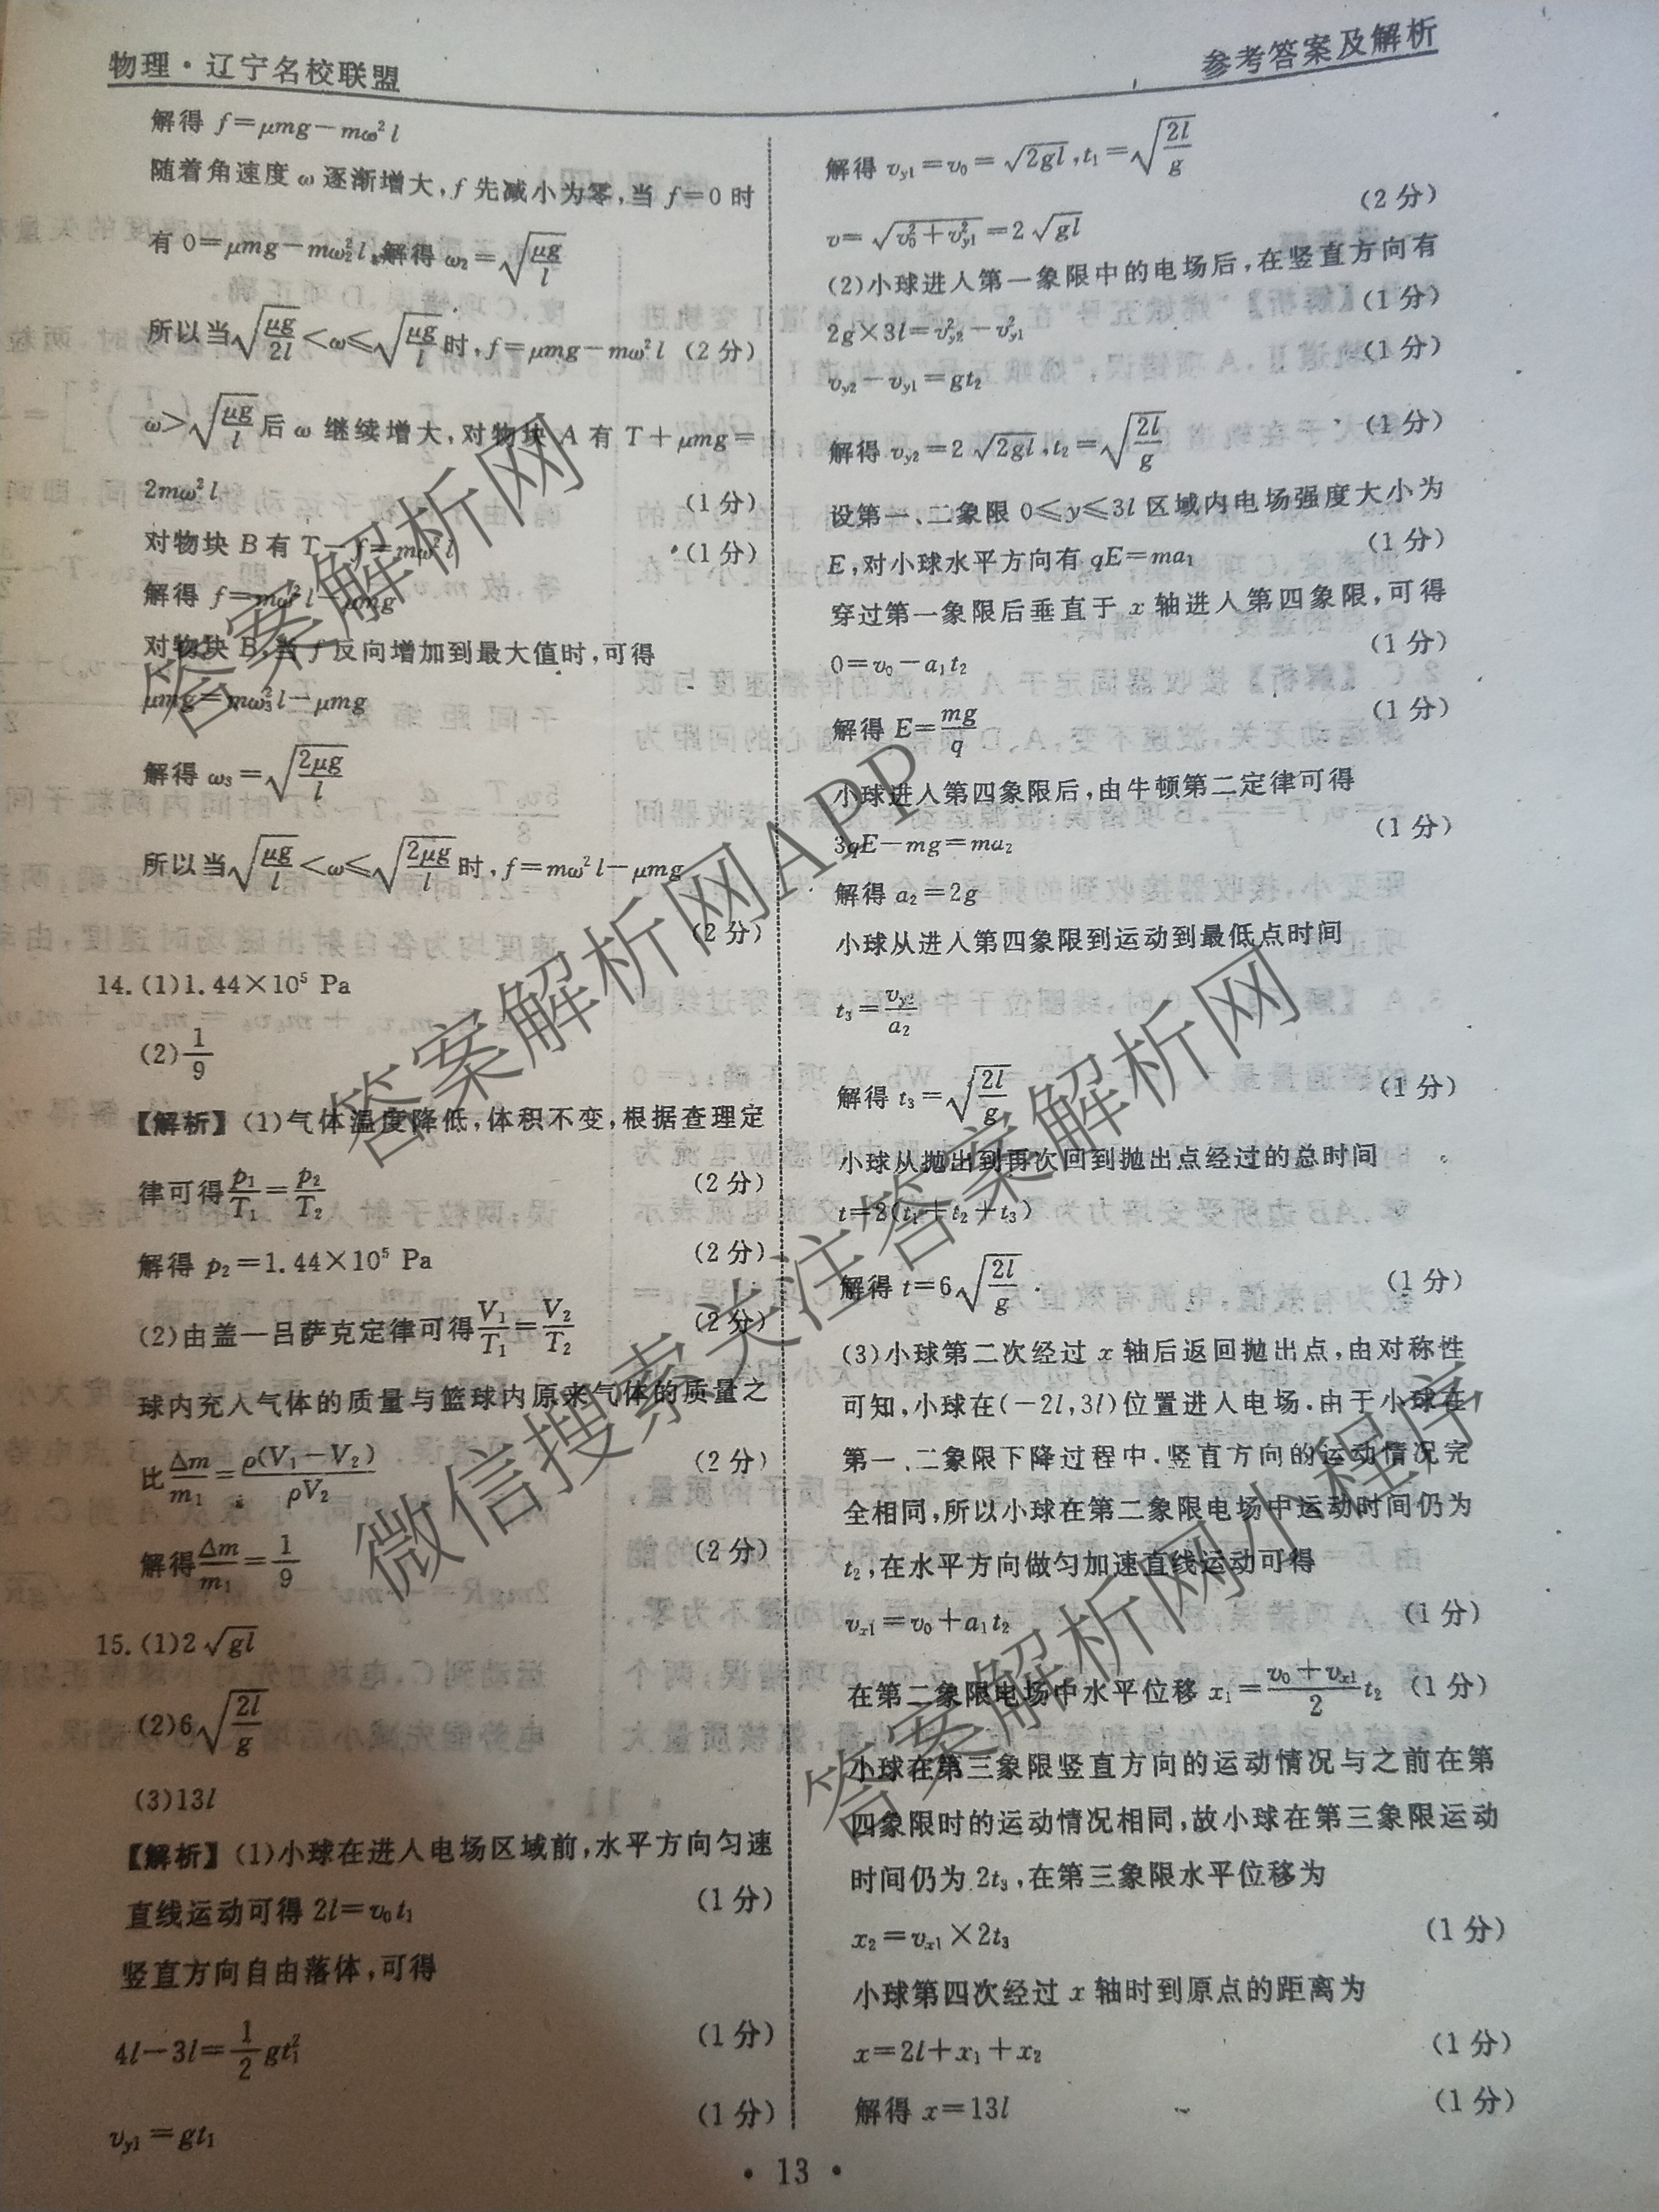 物理·辽宁名校联盟
参考答案及解析
解得 f=μmg-mω²l
随着角速度 ω 逐渐增大,f 先减小为零,当 f=0 时
有 0=μmg-mω₂²l,解得 ω₂=√(μg/l)
所以当√(μg/2l)<ω≤√(μg/l)时,f=μmg-mω²l (2 分)
ω>√(μg/l)后 ω 继续增大,对物块 A 有 T+μmg=
2mω²l (1 分)
对物块 B 有 T-f=mω²l (1 分)
解得 f=mω²l-μmg
对物块 B,当 f 反向增加到最大值时,可得
μmg=mω₃²l-μmg
解得 ω₃=√(2μg/l)
所以当√(μg/l)<ω≤√(2μg/l)时,f=mω²l-μmg
(2 分)
14.(1)1.44×10⁵ Pa
(2)1/9
【解析】(1)气体温度降低,体积不变,根据查理定
律可得p₁/T₁=p₂/T₂ (2 分)
解得 p₂=1.44×10⁵ Pa (2 分)
(2)由盖—吕萨克定律可得V₁/T₁=V₂/T₂ (2 分)
球内充入气体的质量与篮球内原来气体的质量之
比Δm/m₁=ρ(V₁-V₂)/ρV₂ (2 分)
解得Δm/m₁=1/9 (2 分)
15.(1)2√gl
(2)6√(2l/g)
(3)13l
【解析】(1)小球在进入电场区域前,水平方向匀速
直线运动可得 2l=v₀t₁ (1 分)
竖直方向自由落体,可得
4l-3l=1/2gt₁² (1 分)
v_y1=gt₁ (1 分)
解得 v_y1=v₀=√2gl,t₁=√(2l/g)
v=√(v₀²+v_y1²)=2√gl (2 分)
(2)小球进入第一象限中的电场后,在竖直方向有
2g×3l=v_y2²-v_y1² (1 分)
v_y2-v_y1=gt₂ (1 分)
解得 v_y2=2√2gl,t₂=√(2l/g) (1 分)
设第一、二象限 0≤y≤3l 区域内电场强度大小为
E,对小球水平方向有 qE=ma₁ (1 分)
穿过第一象限后垂直于 x 轴进入第四象限,可得
0=v₀-a₁t₂ (1 分)
解得 E=mg/q (1 分)
小球进入第四象限后,由牛顿第二定律可得
3qE-mg=ma₂ (1 分)
解得 a₂=2g
小球从进入第四象限到运动到最低点时间
t₃=v_y2/a₂
解得 t₃=√(2l/g) (1 分)
小球从抛出到再次回到抛出点经过的总时间
t=2(t₁+t₂+t₃)
解得 t=6√(2l/g) (1 分)
(3)小球第二次经过 x 轴后返回抛出点,由对称性
可知,小球在(-2l,3l)位置进入电场.由于小球在
第一、二象限下降过程中,竖直方向的运动情况完
全相同,所以小球在第二象限电场中运动时间仍为
t₂,在水平方向做匀加速直线运动可得
v_x1=v₀+a₁t₂ (1 分)
在第二象限电场中水平位移 x₁=(v₀+v_x1)/2 t₂ (1 分)
小球在第三象限竖直方向的运动情况与之前在第
四象限时的运动情况相同,故小球在第三象限运动
时间仍为 2t₃,在第三象限水平位移为
x₂=v_x1×2t₃ (1 分)
小球第四次经过 x 轴时到原点的距离为
x=2l+x₁+x₂ (1 分)
解得 x=13l (1 分)
·13·
答案解析网
答案解析网APP
微信搜索关注答案解析网
答案解析网小程序